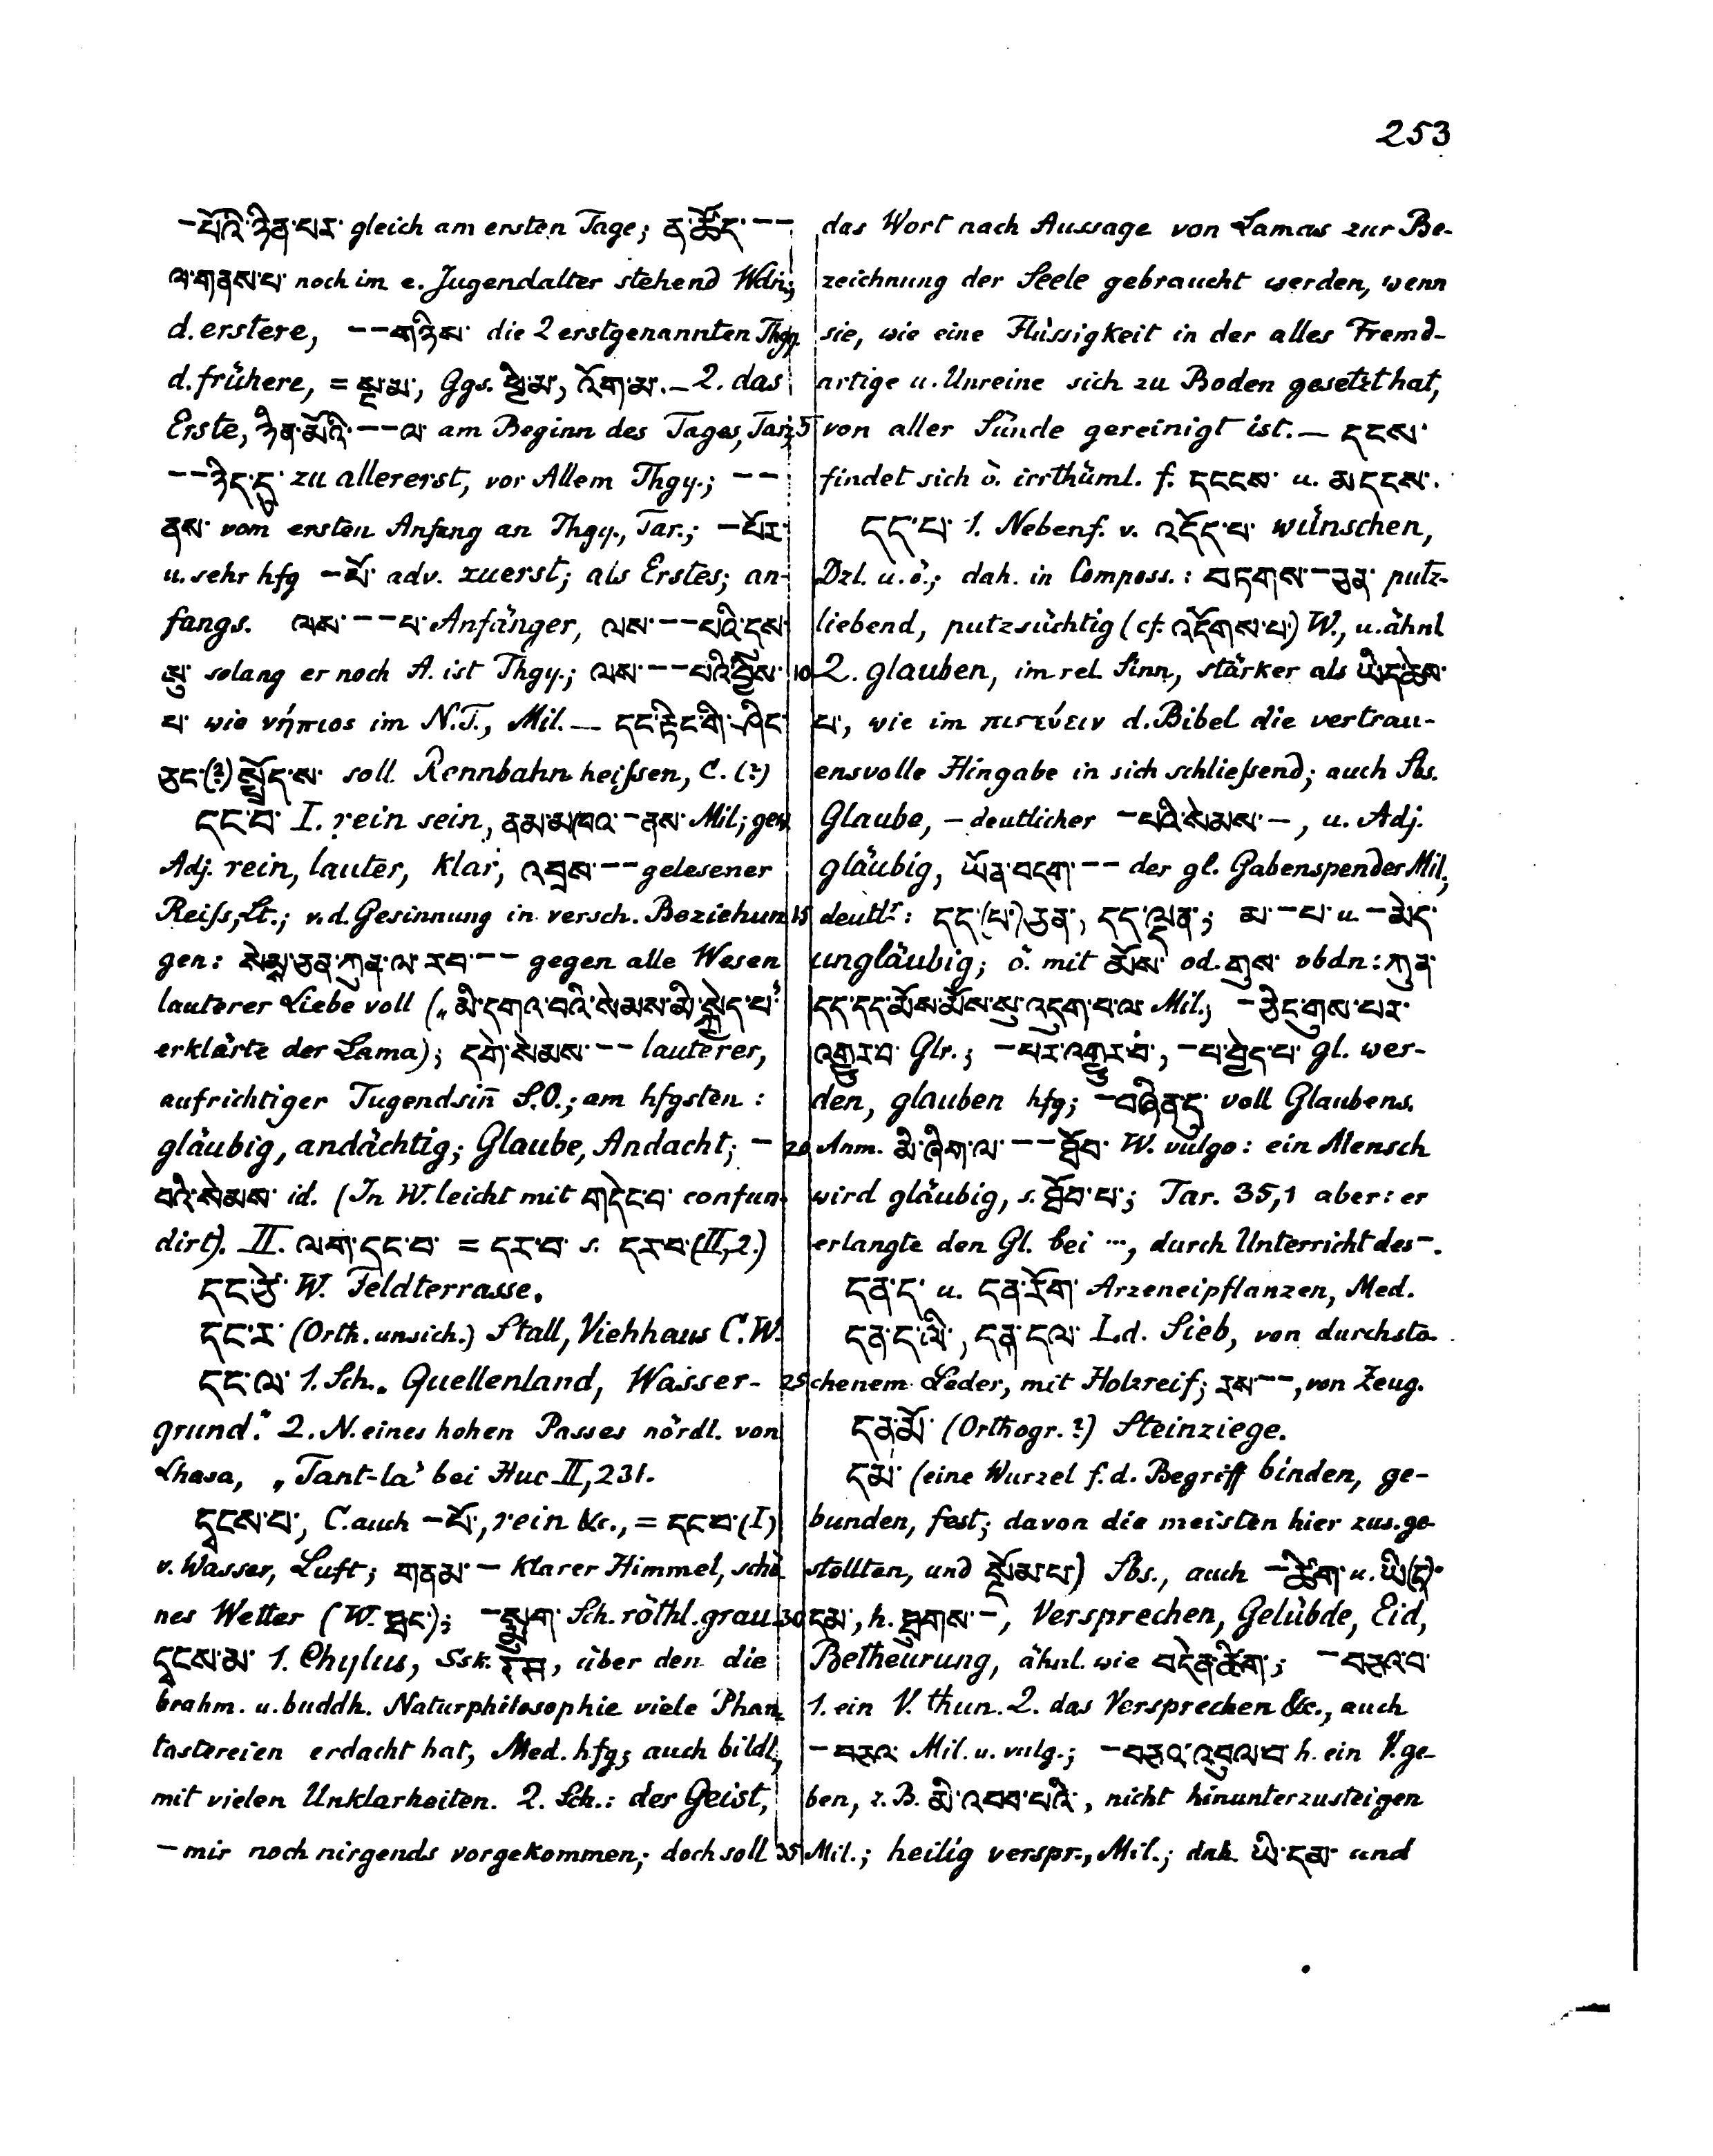 253
-པོའི་ཉིན་པར་ gleich am ersten Tage; ན་ཚོད་--
ལ་གནས་པ་ noch im e. Jugendalter stehend Wdn;
d. erstere, --གཉིས་ die 2 erstgenannten Thgy.
d. frühere, = སྔ་མ་, Ggs. ཕྱི་མ་, འོག་མ་. – 2. das
Erste, ཉིན་མོའི་--ལ་ am Beginn des Tages, Tar.; 5
--ཉིད་དུ་ zu allererst, vor Allem Thgy.; --
ནས་ vom ersten Anfang an Thgy., Tar.; -པོར་
u. sehr hfg -པོ་ adv. zuerst; als Erstes; an-
fangs. ལས་--པ་ Anfänger, ལས་--པའི་དུས་
སུ་ solang er noch A. ist Thgy.; ལས་--པའི་བྱིས་ 10
པ་ wie νήπιος im N.T., Mil. — དང་རྟིང་གི་ཞིང་
ཅུང་(?) སྤྱོད་ས་ soll Rennbahn heißen, C. (?)
དང་བ་ I. rein sein, ནམ་མཁའ་-ནས་ Mil; gew.
Adj. rein, lauter, klar, འབྲས་-- gelesener
Reiß, Lt.; v. d. Gesinnung in versch. Beziehun 15
gen: སེམས་ཅན་ཀུན་ལ་རབ་-- gegen alle Wesen
lauterer Liebe voll („མི་དགའ་བའི་སེམས་མི་སྐྱེད་པ་“
erklärte der Lama); དགེ་སེམས་-- lauterer,
aufrichtiger Tugendsin̄ S.O.; am hfgsten:
gläubig, andächtig; Glaube, Andacht; - 20
བའི་སེམས་ id. (In W. leicht mit གདེང་བ་ confun-
dirt). II. ལག་དང་བ་ = དར་བ་ s. དར་བ་ (II,2.)
དང་ཙེ་ W. Feldterrasse.
དང་ར་ (Orth. unsich.) Stall, Viehhaus C. W.
དང་ལ་ 1. Sch. „Quellenland, Wasser- 25
grund.“ 2. N. eines hohen Passes nördl. von
Lhasa, „Tant-la“ bei Huc II, 231.
དྭངས་པ་, C. auch -པོ་, rein &c., = དང་བ་ (I)
v. Wasser, Luft; གནམ་- klarer Himmel, schö
nes Wetter (W. ཐང་); -སྨུག་ Sch. röthl. grau 30
དྭངས་མ་ 1. Chylus, Ssk. रस, über den die
brahm. u. buddh. Naturphilosophie viele Phan
tastereien erdacht hat, Med. hfg; auch bildl,
mit vielen Unklarheiten. 2. Sch.: der Geist,
- mir noch nirgends vorgekommen; doch soll 35
das Wort nach Aussage von Lamas zur Be-
zeichnung der Seele gebraucht werden, wenn
sie, wie eine Flüssigkeit in der alles Fremd-
artige u. Unreine sich zu Boden gesetzt hat,
von aller Sünde gereinigt ist. — དངས་
findet sich ö. irrthüml. f. དངངས་ u. མདངས་.
དད་པ་ 1. Nebenf. v. འདོད་པ་ wünschen,
Dzl. u. ö.; dah. in Composs.: བཏགས་-ཅན་ putz-
liebend, putzsüchtig (cf. འདོགས་པ་) W., u. ähnl
2. glauben, im rel. Sinn, stärker als ཡིད་ཆེས་
པ་, wie im πιστεύειν d. Bibel die vertrau-
ensvolle Hingabe in sich schließend; auch Sbs.
Glaube, – deutlicher -པའི་སེམས་-, u. Adj.
gläubig, ཡོན་བདག་-- der gl. Gabenspender Mil,
deutlr: དད་(པ་)ཅན་, དད་ལྡན་; མ་-པ་ u. -མེད་
ungläubig; ö. mit མོས་ od. གུས་ vbdn: ཀུན་
དད་དད་མོས་མོས་སུ་འདུག་པ་ལ་ Mil.; -ཅིང་གུས་པར་
འགྱུར་བ་ Glr.; -པར་འགྱུར་བ་, -པ་བྱེད་པ་ gl. wer-
den, glauben hfg; -བཞིན་དུ་ voll Glaubens.
Anm. མི་ཞིག་ལ་--ཐོབ་ W. vulgo: ein Mensch
wird gläubig, s. ཐོབ་པ་; Tar. 35,1 aber: er
erlangte den Gl. bei …, durch Unterricht des -.
དན་ད་ u. དན་རོག་ Arzeneipflanzen, Med.
དན་ད་ལི་, དན་དལ་ Ld. Sieb, von durchsto-
chenem Leder, mit Holzreif; རས་--, von Zeug.
དན་མོ་ (Orthogr. ?) Steinziege.
དམ་ (eine Wurzel f. d. Begriff binden, ge-
bunden, fest; davon die meisten hier zus. ge-
stellten, und སྡོམ་པ་) Sbs., auch -ཚིག་ u. ཡི(ད)་
དམ་, h. ཐུགས་-, Versprechen, Gelübde, Eid,
Betheurung, ähnl. wie བདེན་ཚིག་; -བཅའ་བ་
1. ein V. thun. 2. das Versprechen &c., auch
-བཅའ་ Mil. u. vulg.; -བཅའ་འབུལ་བ་ h. ein V. ge-
ben, z. B. མི་འབབ་པའི་, nicht hinunterzusteigen
Mil.; heilig verspr., Mil.; dah. ཡི་དམ་ und